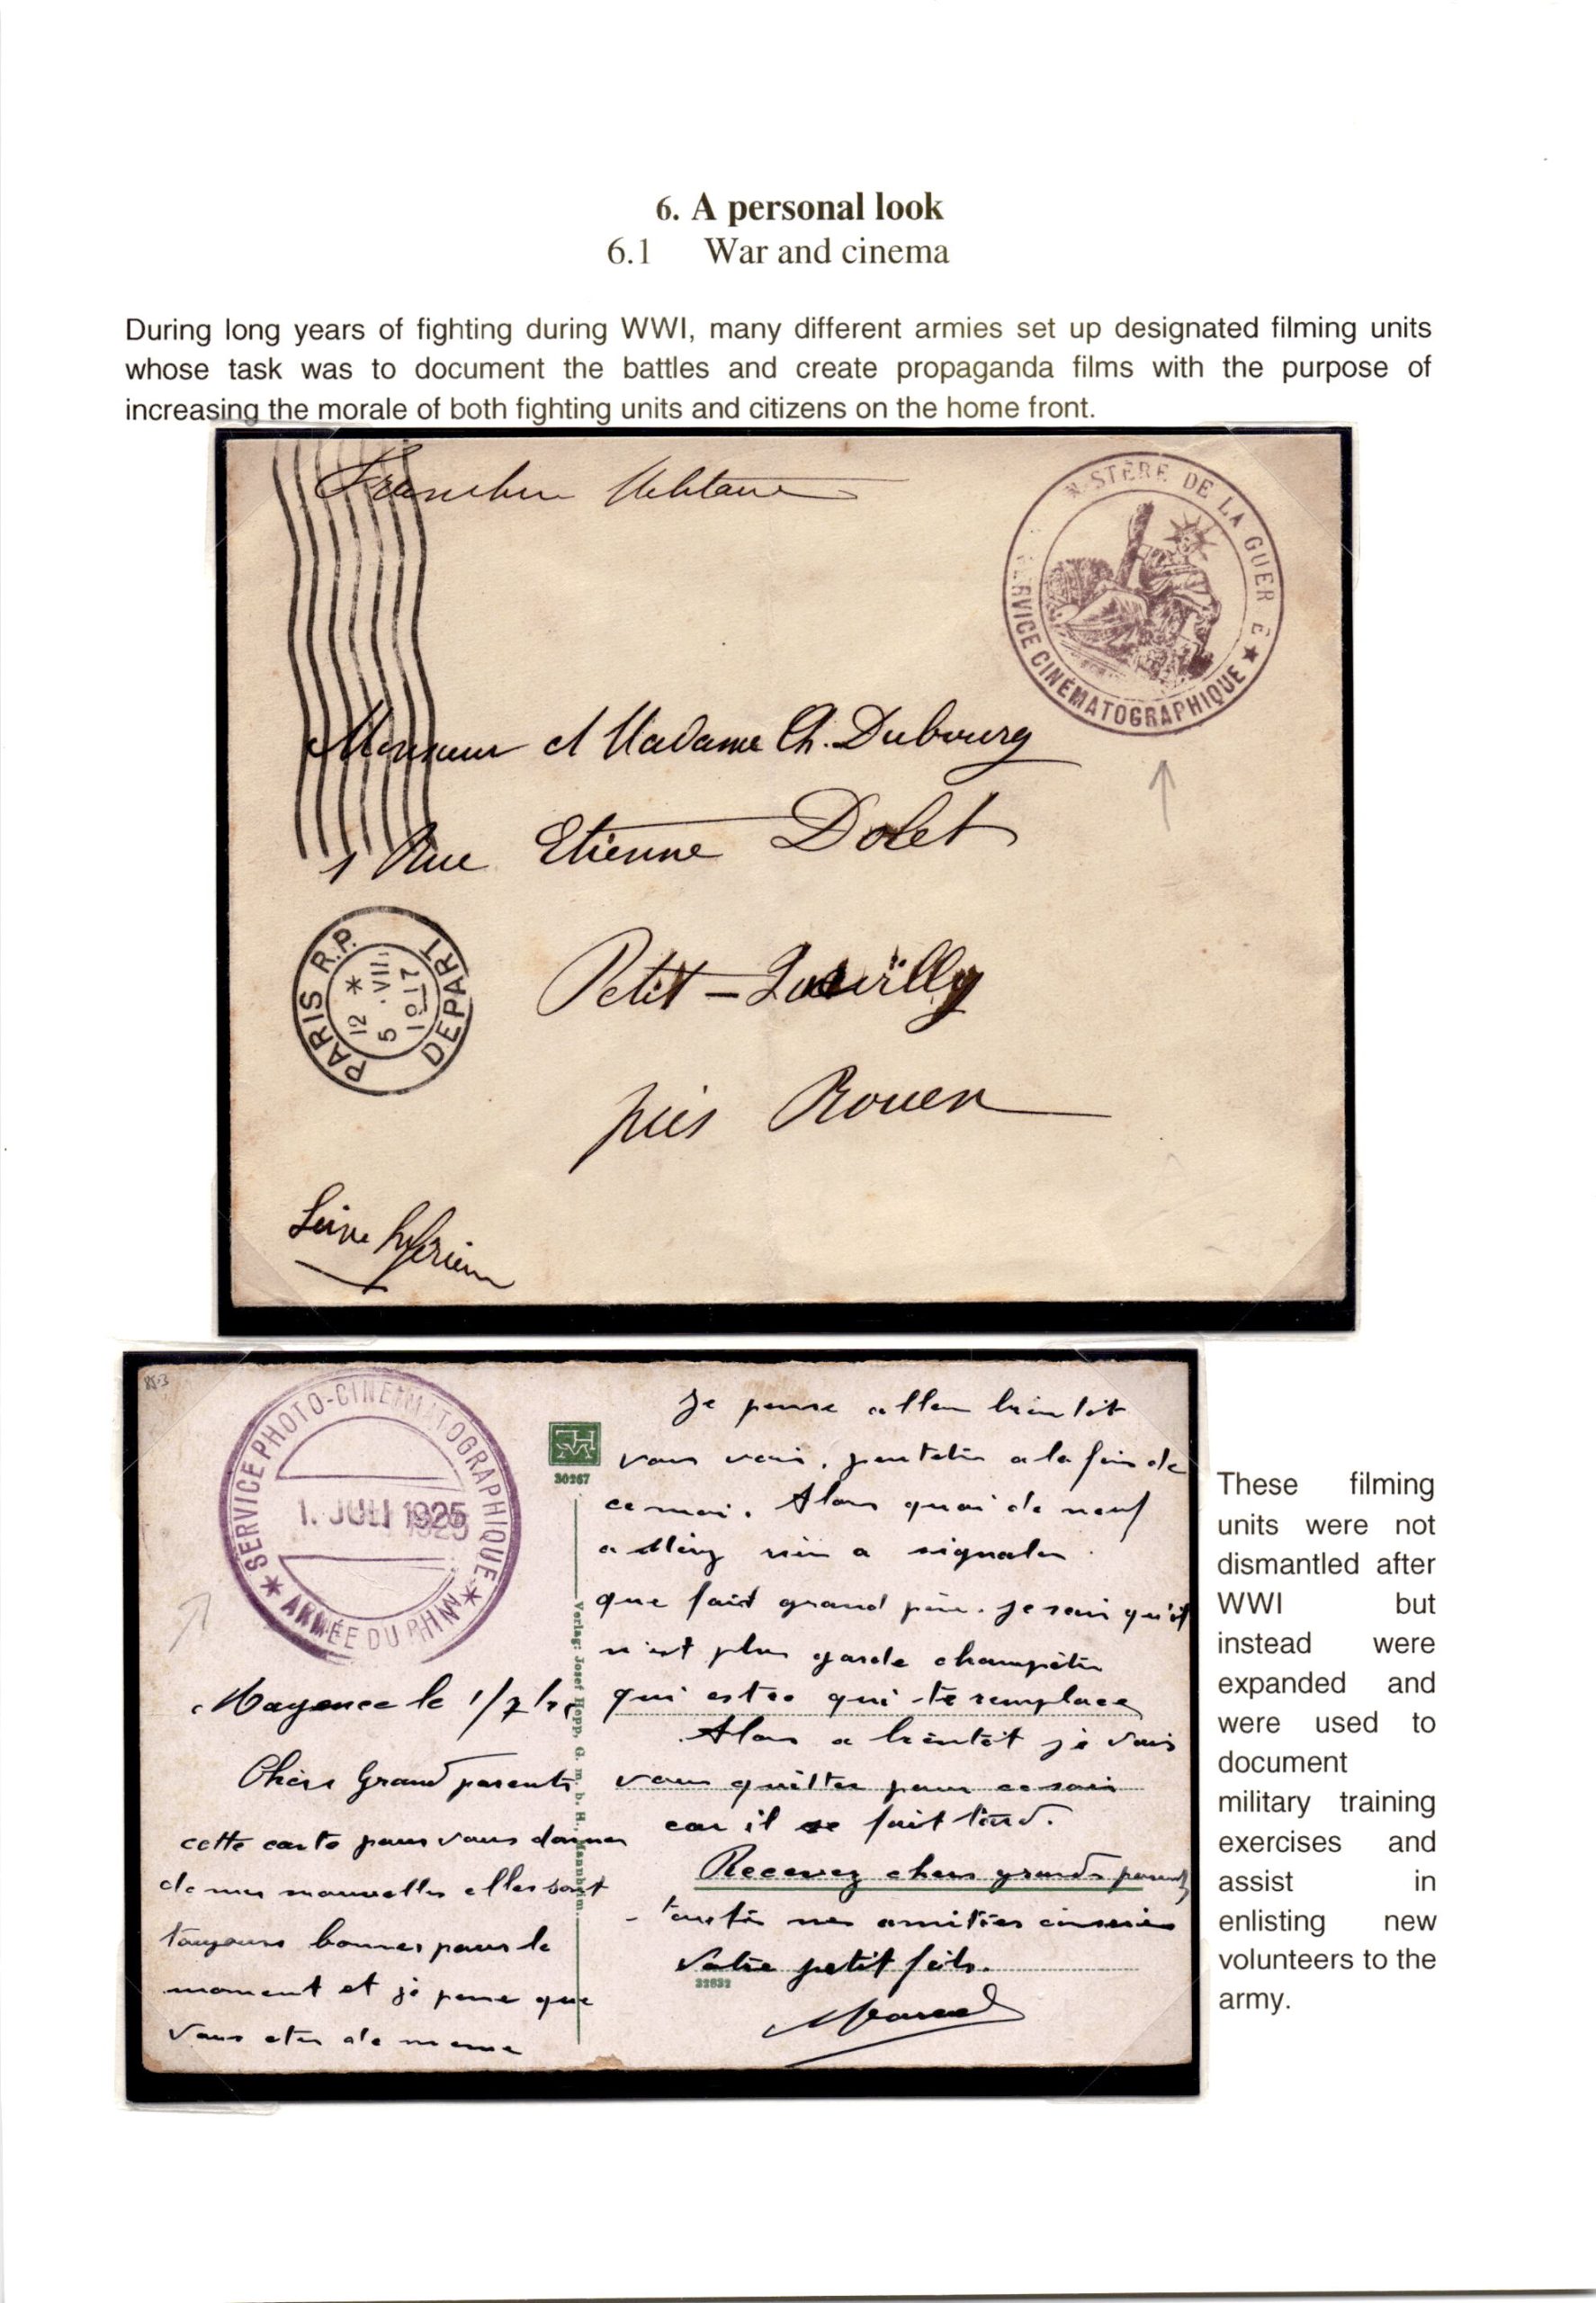 6. A personal look
6.1 War and cinema
During long years of fighting during WWI, many different armies set up designated filming units
whose task was to document the battles and create propaganda films with the purpose of
increasing the morale of both fighting units and citizens on the home front.
STÈRE DE LA GUER E ★
RVICE CINÉMATOGRAPHIQUE
Monsieur et Madame Ch. Dubourg
1 Rue Etienne Dolet
PARIS R.P.
12 *
5 .VII.
1917
DEPART
Petit-Quevilly
près Rouen
Seine Inférieure
SERVICE PHOTO-CINEMATOGRAPHIQUE
1. JULI 1925
★ ARMÉE DU RHIN ★
30267
Verlag: Josef Hepp, G. m. b. H., Mannheim.
Mayence le 1/7/25
Chers Grand parents
cette carte pour vous donner
de mes nouvelles elles sont
toujours bonnes pour le
moment et je pense que
vous etes de meme
je pense aller bientôt
vous voir, peutetre a la fin de
ce moi. Alors quoi de neuf
a rien a signaler.
que fait grand père. je sais qu'il
n'est plus garde champêtre
qui est ce qui te remplace
Alors a bientôt je vais
vous quitter pour ce soir
car il se fait tard.
Recevez chers grands parents
toutes mes amitiés sincères
Votre petit fils.
32632
Marcel
These filming
units were not
dismantled after
WWI but
instead were
expanded and
were used to
document
military training
exercises and
assist in
enlisting new
volunteers to the
army.